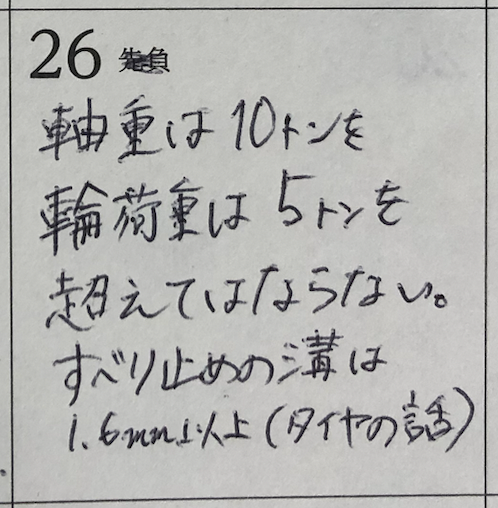 26 先負
軸重は10トンを
輪荷重は5トンを
超えてはならない。
すべり止めの溝は
1.6mm以上(タイヤの話)